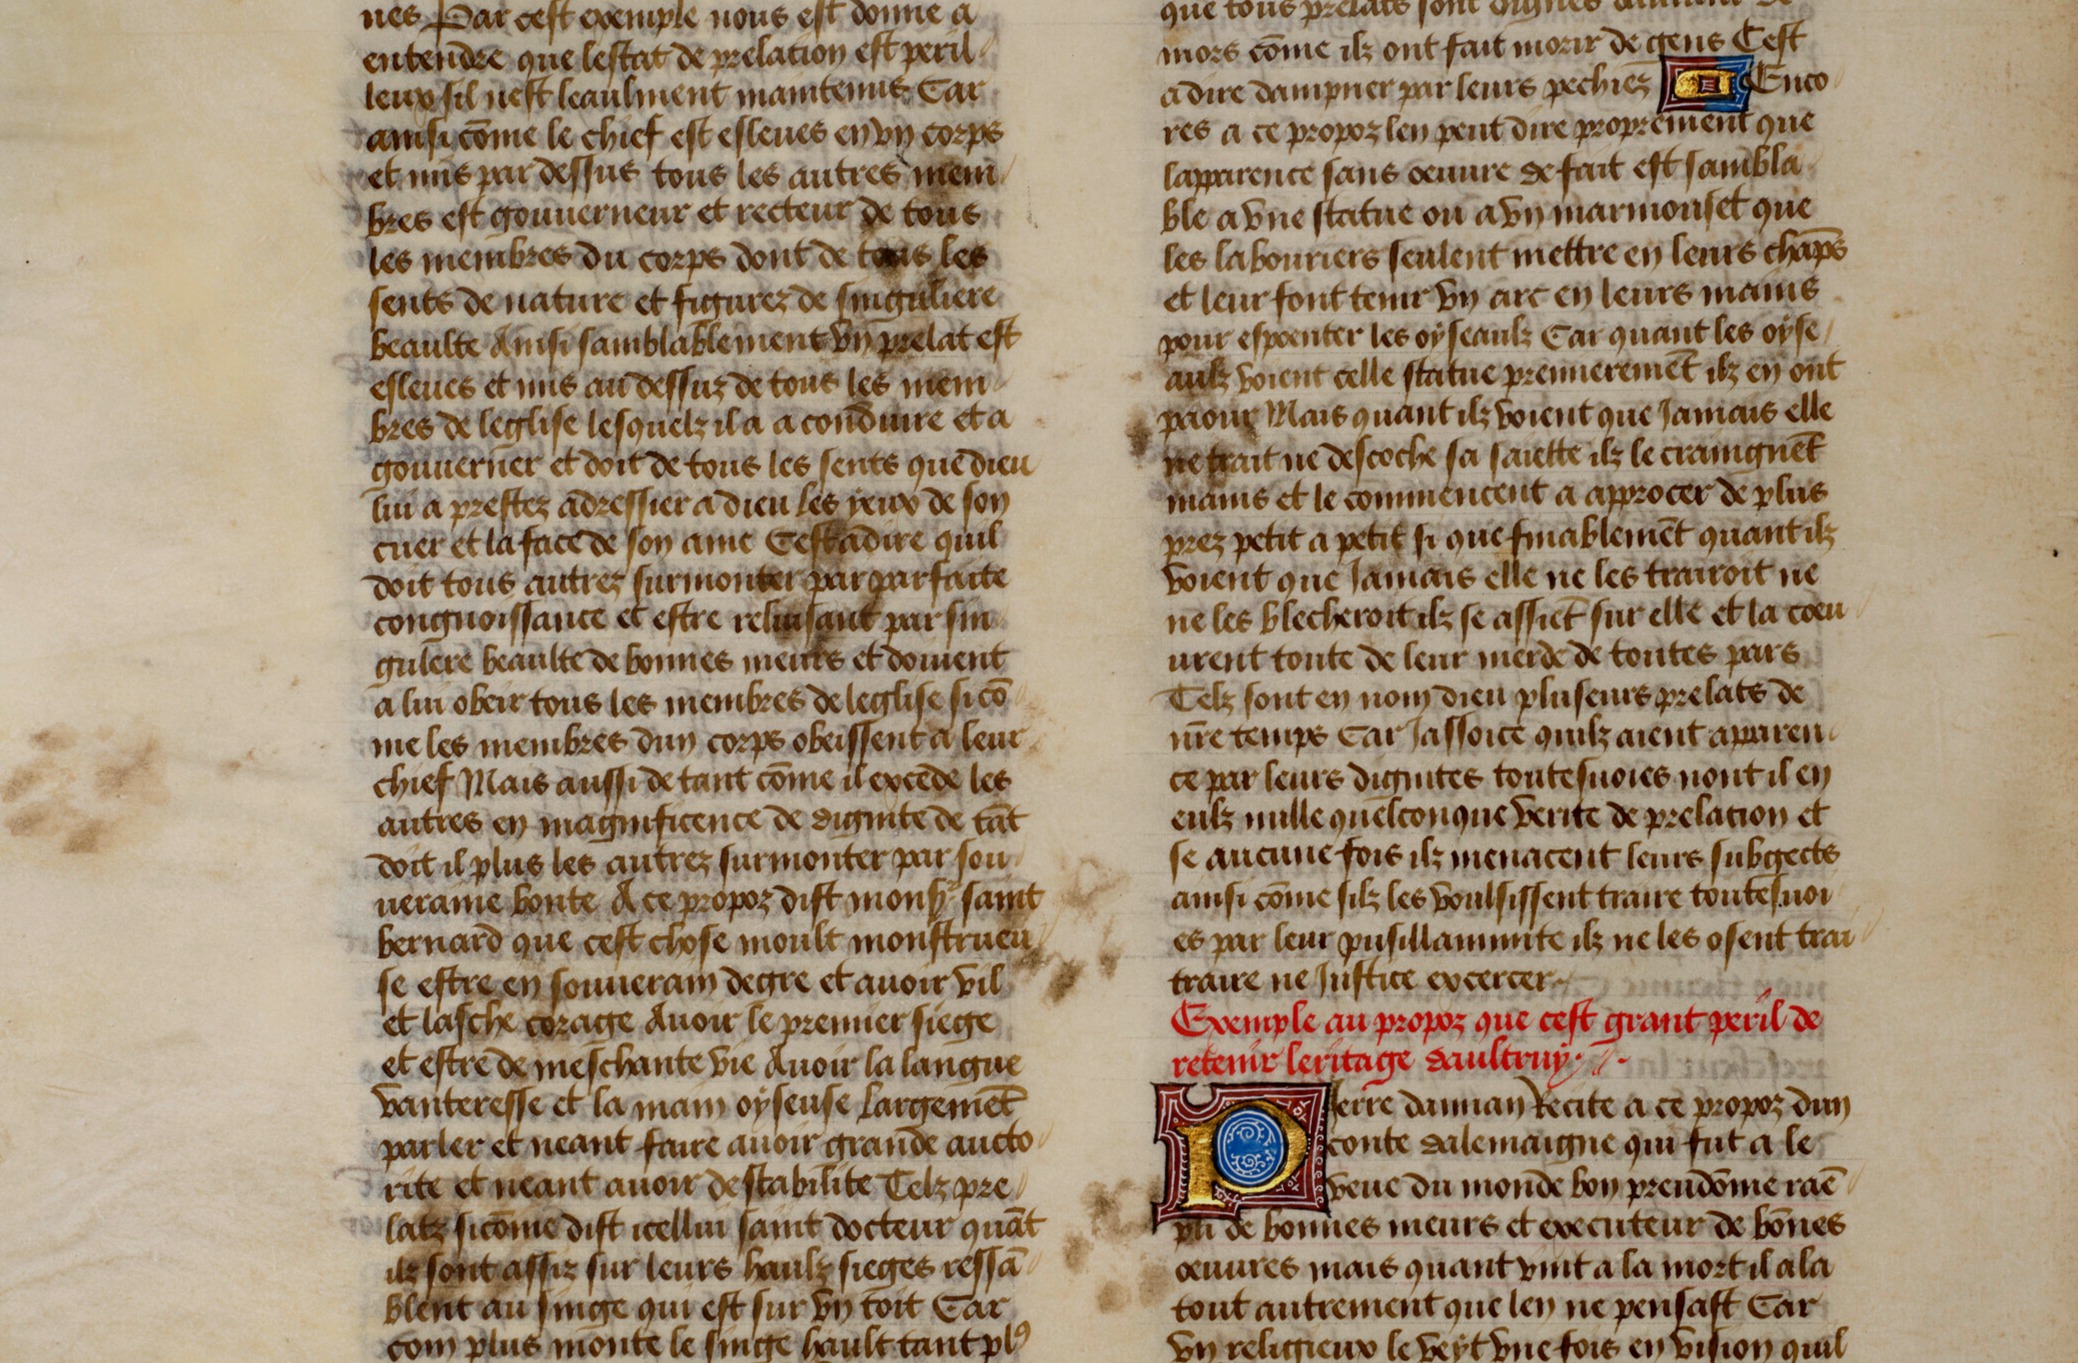 nes Par cest exemple nous est donne a
entendre que lestat de prelation est peril
leux sil nest leaulment maintenus Car
ainsi cōme le chief est esleues en vn corps
et mis par dessus tous les autres mem
bres est gouuerneur et recteur de tous
les membres du corps dont de tous les
sents de nature et figurez de singuliere
beaulte Ainsi samblablement vn prelat est
esleues et mis au dessuz de tous les mem
bres de leglise lesquelz il a a conduire et a
gouuerner et doit de tous les sents que dieu
lui a prestez adressier a dieu les yeux de son
cuer et la face de son ame Cest a dire quil
doit tous autrez surmonter par parfaite
congnoissance et estre reluisant par sin
gulere beaulte de bonnes meurs et doiuent
a lui obeir tous les membres de leglise si cō
me les membres dun corps obeissent a leur
chief Mais aussi de tant cōme il excede les
autres en magnificence de dignite de tāt
doit il plus les autrez surmonter par sou
ueraine bonte A ce propoz dist monsr saint
bernard que cest chose moult monstrueu
se estre en souuerain degre et auoir vil
et lasche corage Auoir le premier siege
et estre de meschante vie Auoir la langue
vanteresse et la main oyseuse Largemēt
parler et neant faire auoir grande aucto
rite et neant auoir destabilite Telz pre
latz si cōme dist icellui saint docteur quāt
ilz sont assiz sur leurs haulz sieges ressā
blent au singe qui est sur vn toit Car
com plus monte le singe hault tant plꝰ
que tous prelats sont dignes dautant de
mors cōme ilz ont fait morir de gens Cest
a dire dampner par leurs pechiez Enco
res a ce propoz len peut dire proprement que
lapparence sans oeuure de fait est sambla
ble a vne statue ou a vn marmouset que
les labouriers seulent mettre en leurs chāps
et leur font tenir vn arc en leurs mains
pour espoenter les oyseaulz Car quant les oyse
aulz voient celle statue premieremēt ilz en ont
paour Mais quant ilz voient que Jamais elle
ne trait ne descoche sa saiette ilz le craingnēt
mains et le commencent a approcer de plus
prez petit a petit si que finablemēt quant ilz
voient que Jamais elle ne les trairoit ne
ne les blecheroit ilz se assiēt sur elle et la coeu
urent toute de leur merde de toutes pars
Telz sont en nom dieu pluseurs prelats de
nr̄e temps Car Jassoice quilz aient apparen
ce par leurs dignites toutesuoies nont il en
eulz nulle quelconque verite de prelation et
se aucune fois ilz menacent leurs subgects
ainsi cōme silz les voulsissent traire toutesuoi
es par leur pusillanimite ilz ne les osent trai
traire ne Justice excercer
Exemple au propoz que cest grant peril de
retenir leritage daultruy
Pierre damian Recite a ce propoz dun
conte dalemaigne qui fut a le
veue du monde bon preudōme raē
pli de bonnes meurs et executeur de bōnes
oeuures mais quant vint a la mort il ala
tout autrement que len ne pensast Car
vn religieux le veyt vne fois en vision quil